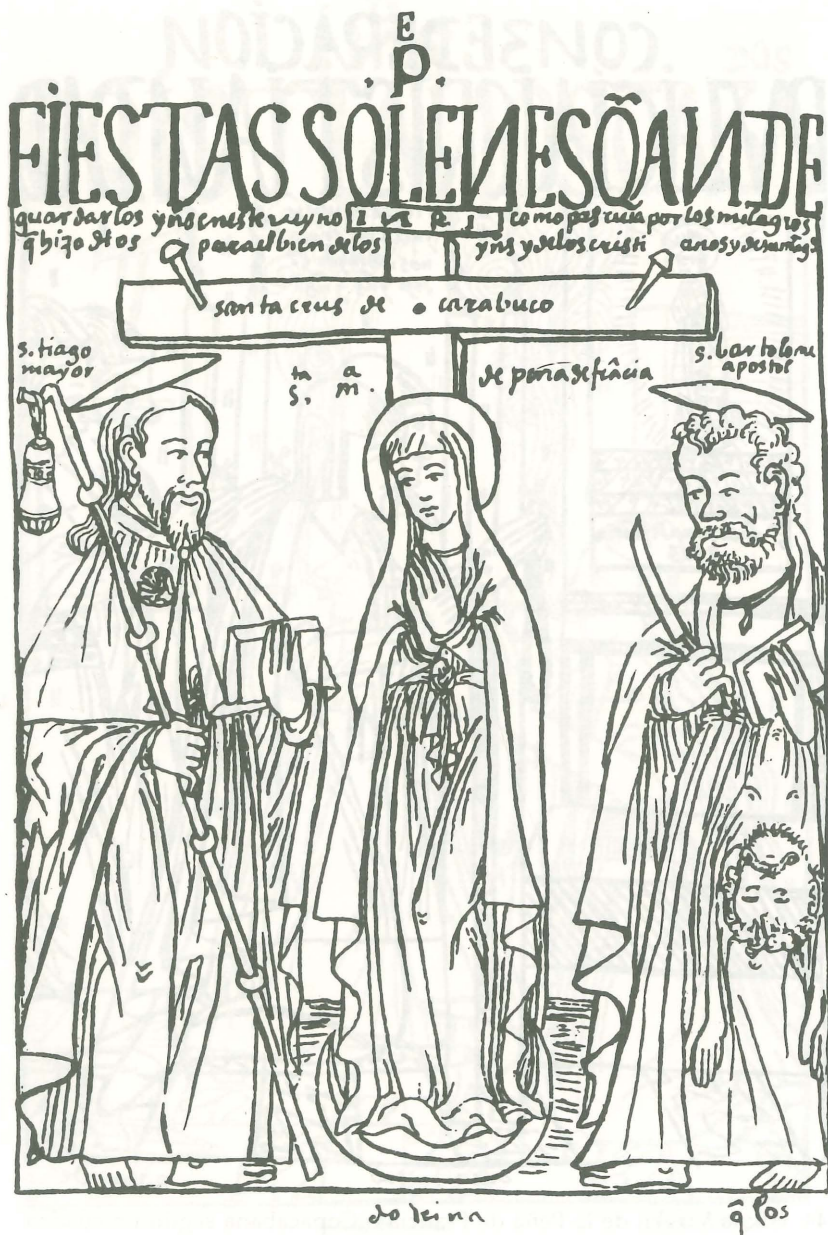 E
.P.
FIESTAS SOLENES Q̃ AN DE
guardar los yns en este rreyno INRI como pascua por los milagros
q̄ hizo dios para el bien de los yns y de los cristianos y de
santa crus de carabuco
s. tiago
mayor
s.ta m.a de peña de frãcia
s. bartolome
apostol
dotrina
q̄ los